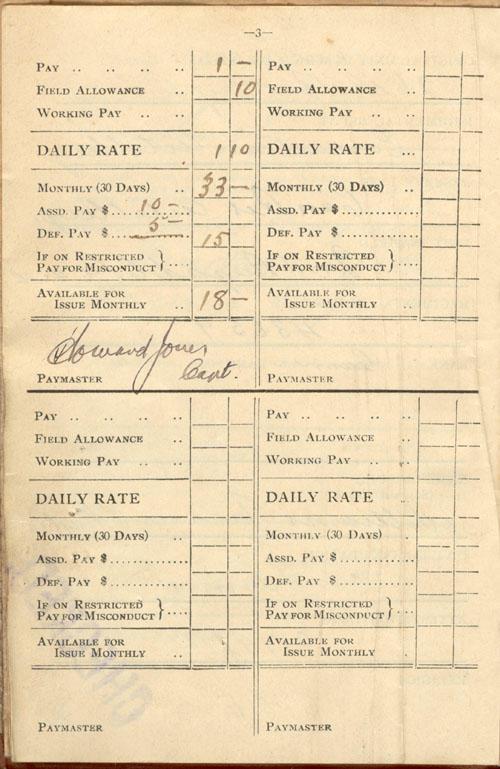 —3—
PAY .. .. .. .. 1 —
FIELD ALLOWANCE .. 10
WORKING PAY .. .. ..
DAILY RATE 1 10
MONTHLY (30 DAYS) .. 33 —
ASSD. PAY $ .......... 10 —
DEF. PAY $ .......... 5 — 15
IF ON RESTRICTED
PAY FOR MISCONDUCT } ....
AVAILABLE FOR
ISSUE MONTHLY .. 18 —
Howard Jones
Capt.
PAYMASTER
PAY .. .. .. ..
FIELD ALLOWANCE ..
WORKING PAY .. ..
DAILY RATE ...
MONTHLY (30 DAYS) ..
ASSD. PAY $ ..............
DEF. PAY $ ..............
IF ON RESTRICTED
PAY FOR MISCONDUCT } ....
AVAILABLE FOR
ISSUE MONTHLY ..
PAYMASTER
PAY .. .. .. ..
FIELD ALLOWANCE ..
WORKING PAY .. .. ..
DAILY RATE
MONTHLY (30 DAYS) ..
ASSD. PAY $ ..............
DEF. PAY $ ..............
IF ON RESTRICTED
PAY FOR MISCONDUCT } ....
AVAILABLE FOR
ISSUE MONTHLY ..
PAYMASTER
PAY .. .. .. ..
FIELD ALLOWANCE ..
WORKING PAY .. ..
DAILY RATE .
MONTHLY (30 DAYS) ..
ASSD. PAY $ ..............
DEF. PAY $ ..............
IF ON RESTRICTED
PAY FOR MISCONDUCT } ....
AVAILABLE FOR
ISSUE MONTHLY ..
PAYMASTER